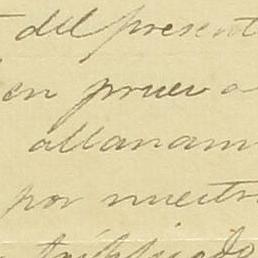 del present
en prueva
allanam
por nuestr